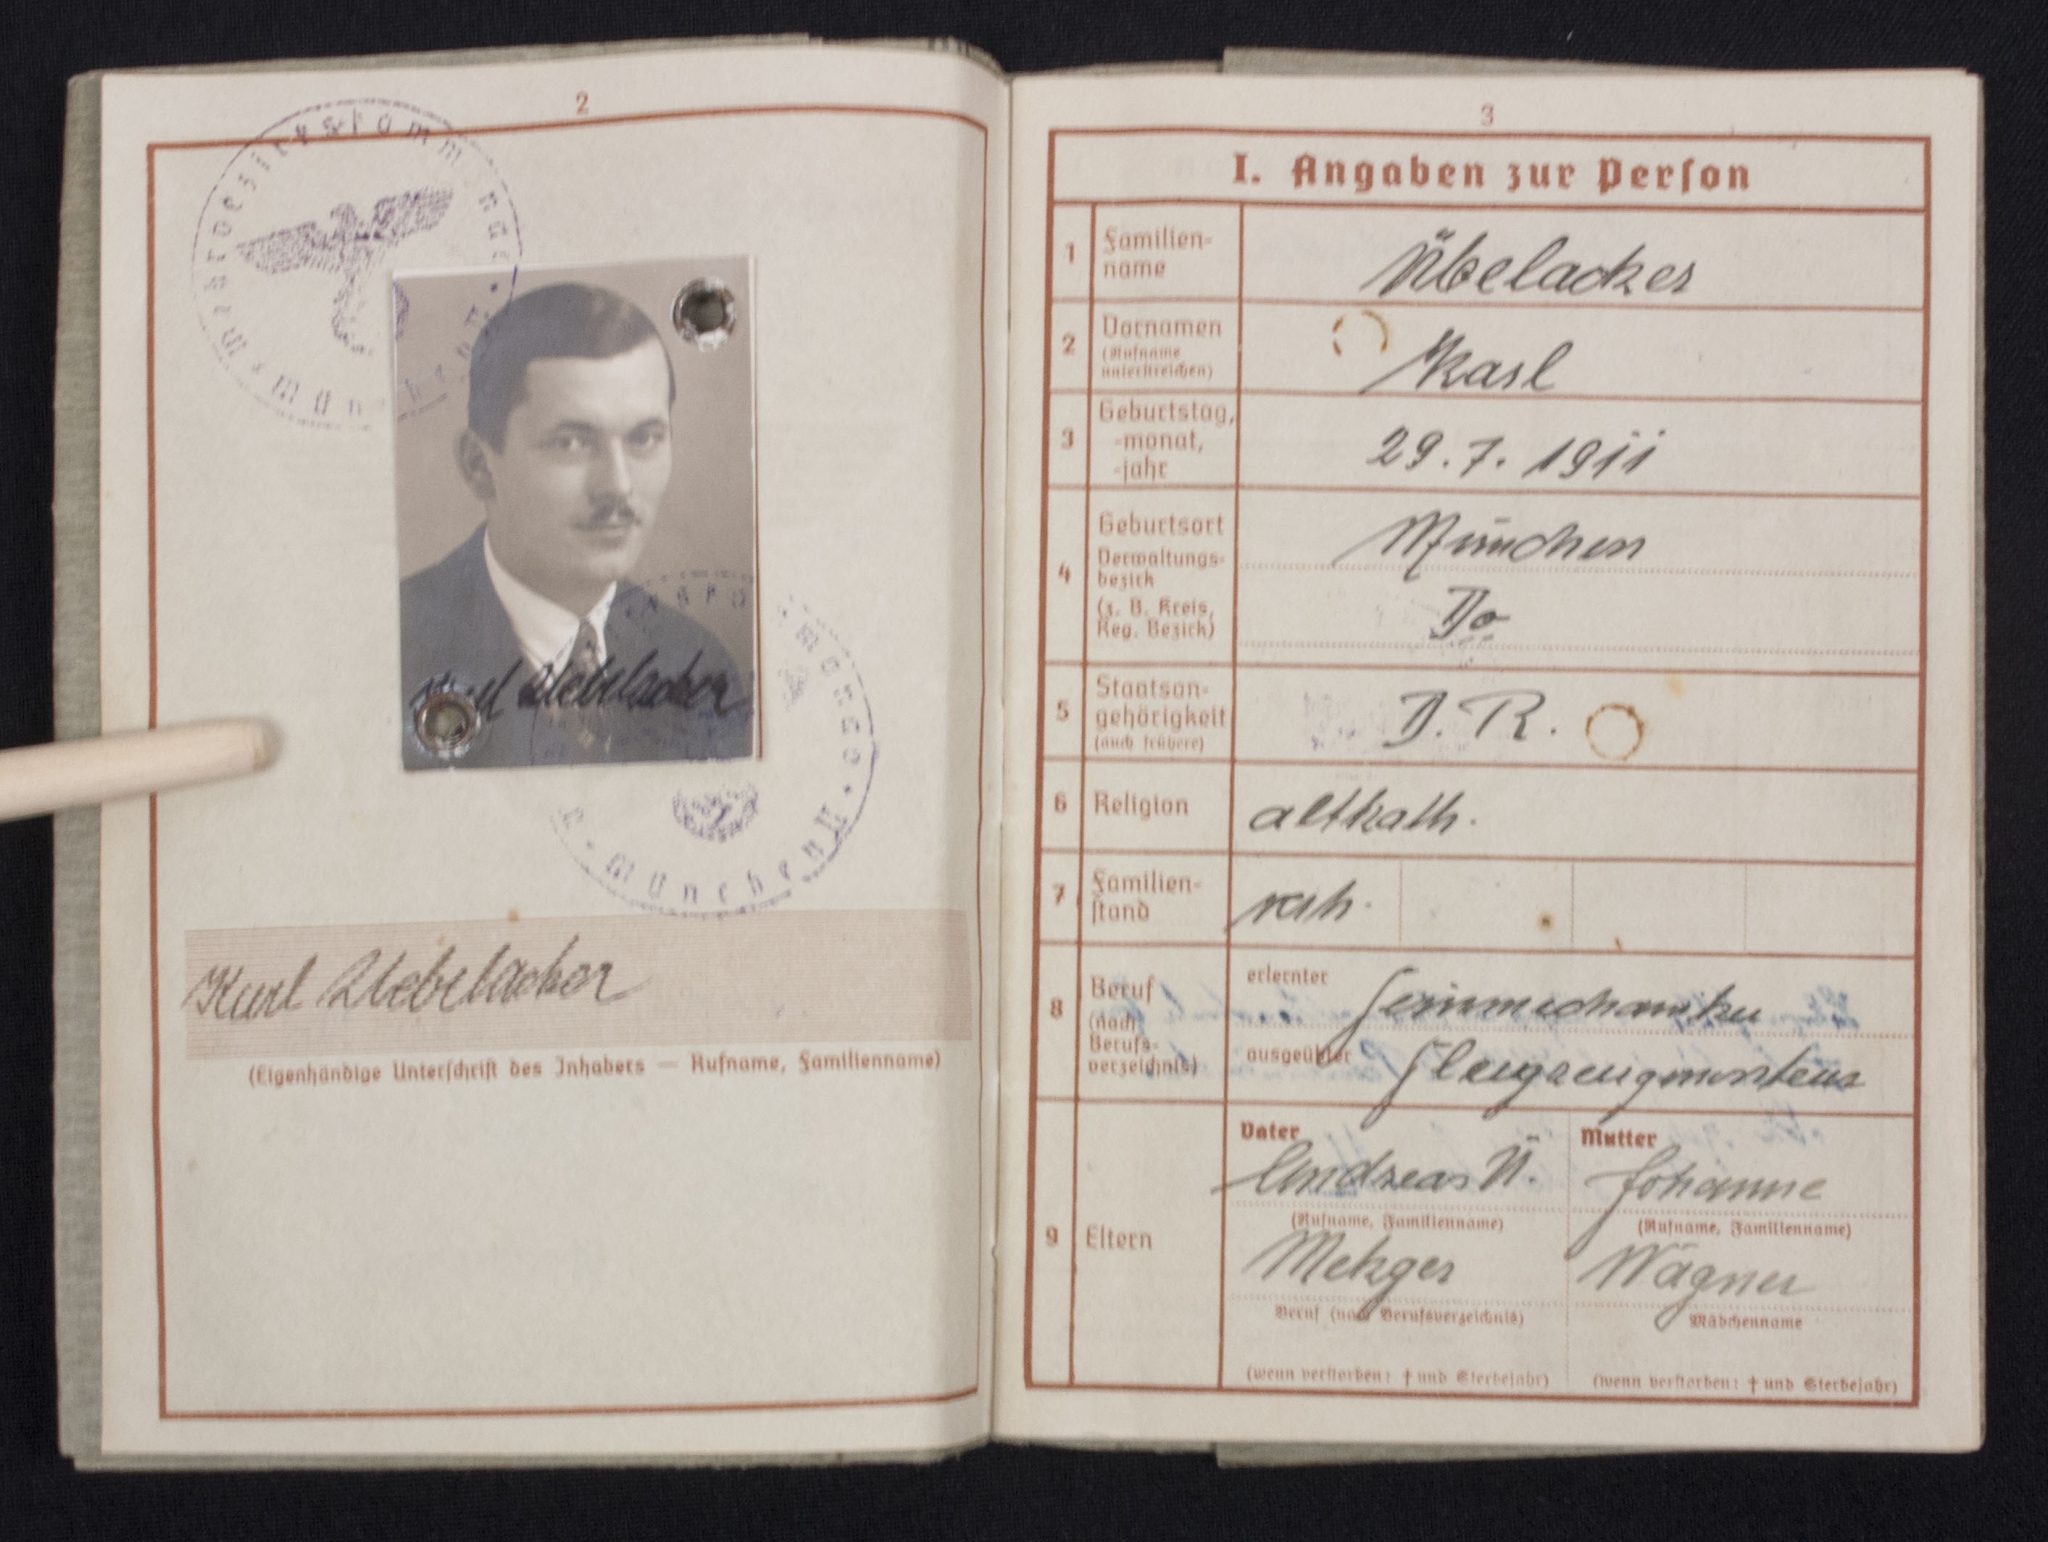 2
Wehrbezirkskommando
München
Karl Uebelacker
München
Karl Uebelacker
(Eigenhändige Unterschrift des Inhabers — Rufname, Familienname)
3
I. Angaben zur Person
1 Familien-
name
Übelacker
2 Vornamen
(Rufname
unterstreichen)
Karl
3 Geburtstag,
-monat,
-jahr
29.7.1911
4 Geburtsort
Verwaltungs-
bezirk
(z. B. Kreis,
Reg. Bezirk)
München
Do
5 Staatsan-
gehörigkeit
(auch frühere)
D. R.
6 Religion
altkath.
7 Familien-
stand
8 Beruf
(nach
Berufs-
verzeichnis)
erlernter
Feinmechaniker
ausgeübter
Flugzeugmonteur
9 Eltern
Vater
Andreas Ü.
(Rufname, Familienname)
Metzger
Beruf (nach Berufsverzeichnis)
(wenn verstorben: † und Sterbejahr)
Mutter
Johanne
(Rufname, Familienname)
Wagner
Mädchenname
(wenn verstorben: † und Sterbejahr)